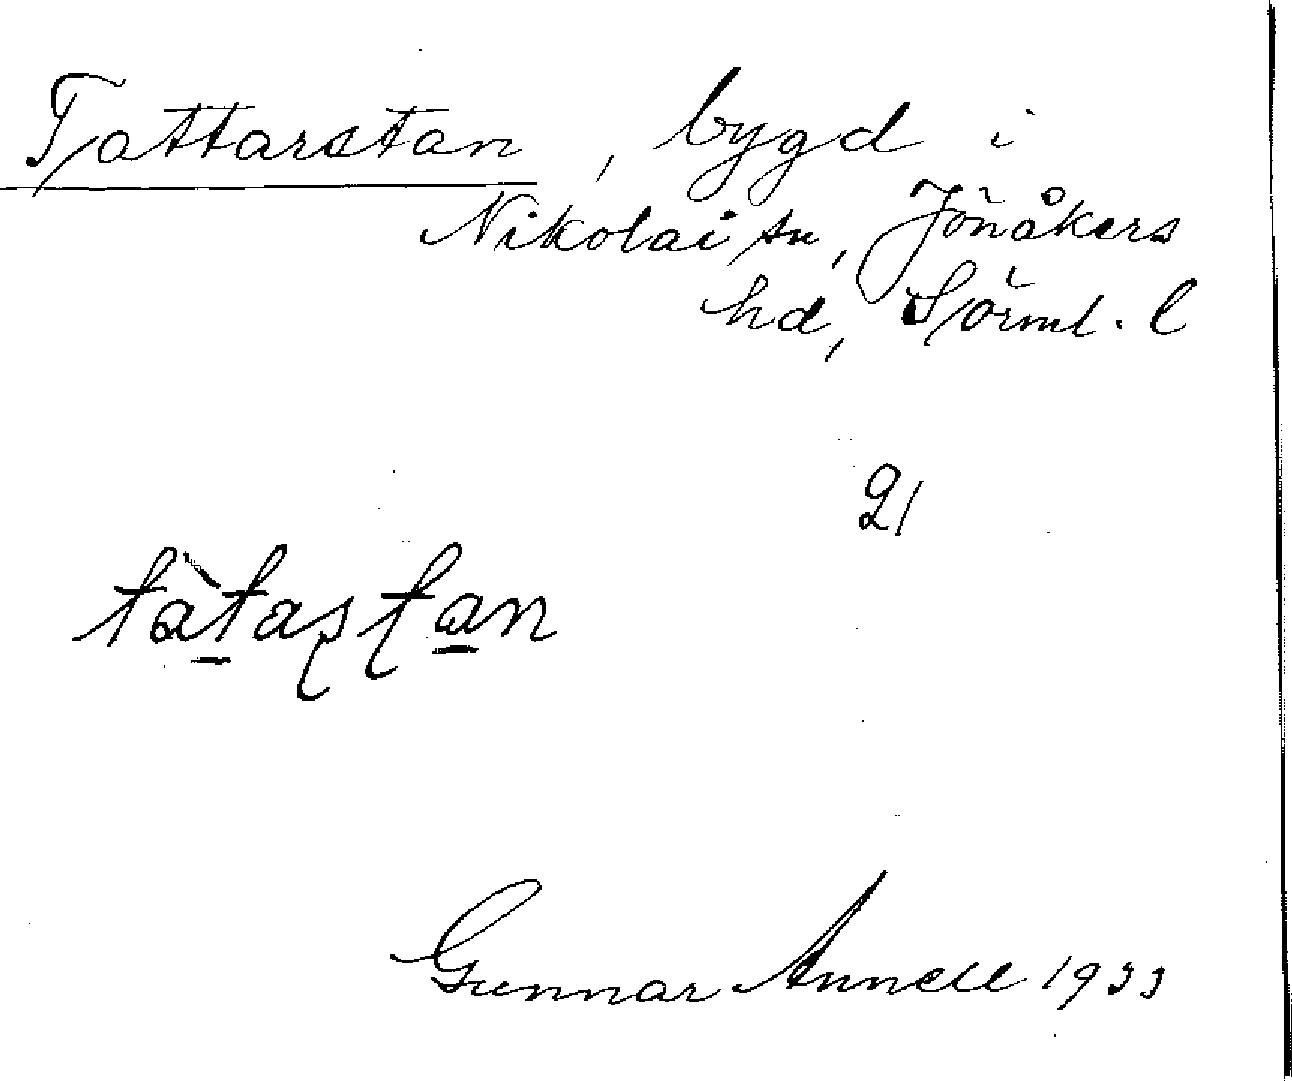 Tattarstan, bygd i
Nikolai sn, Jönåkers
hd, Sörml. l
21
tàtaʂʈan
Gunnar Annell 1933